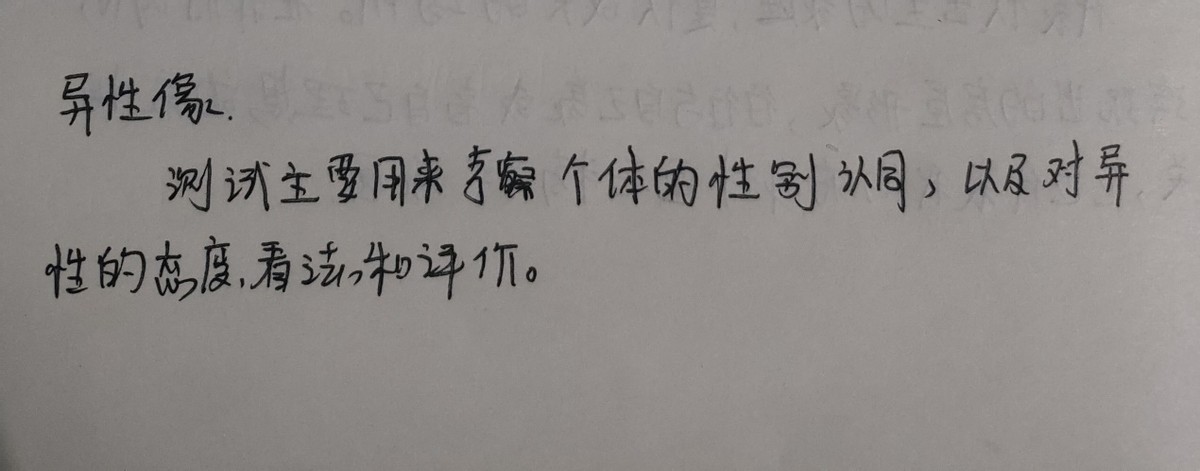 异性像.
测试主要用来考察个体的性别认同，以及对异
性的态度、看法和评价。